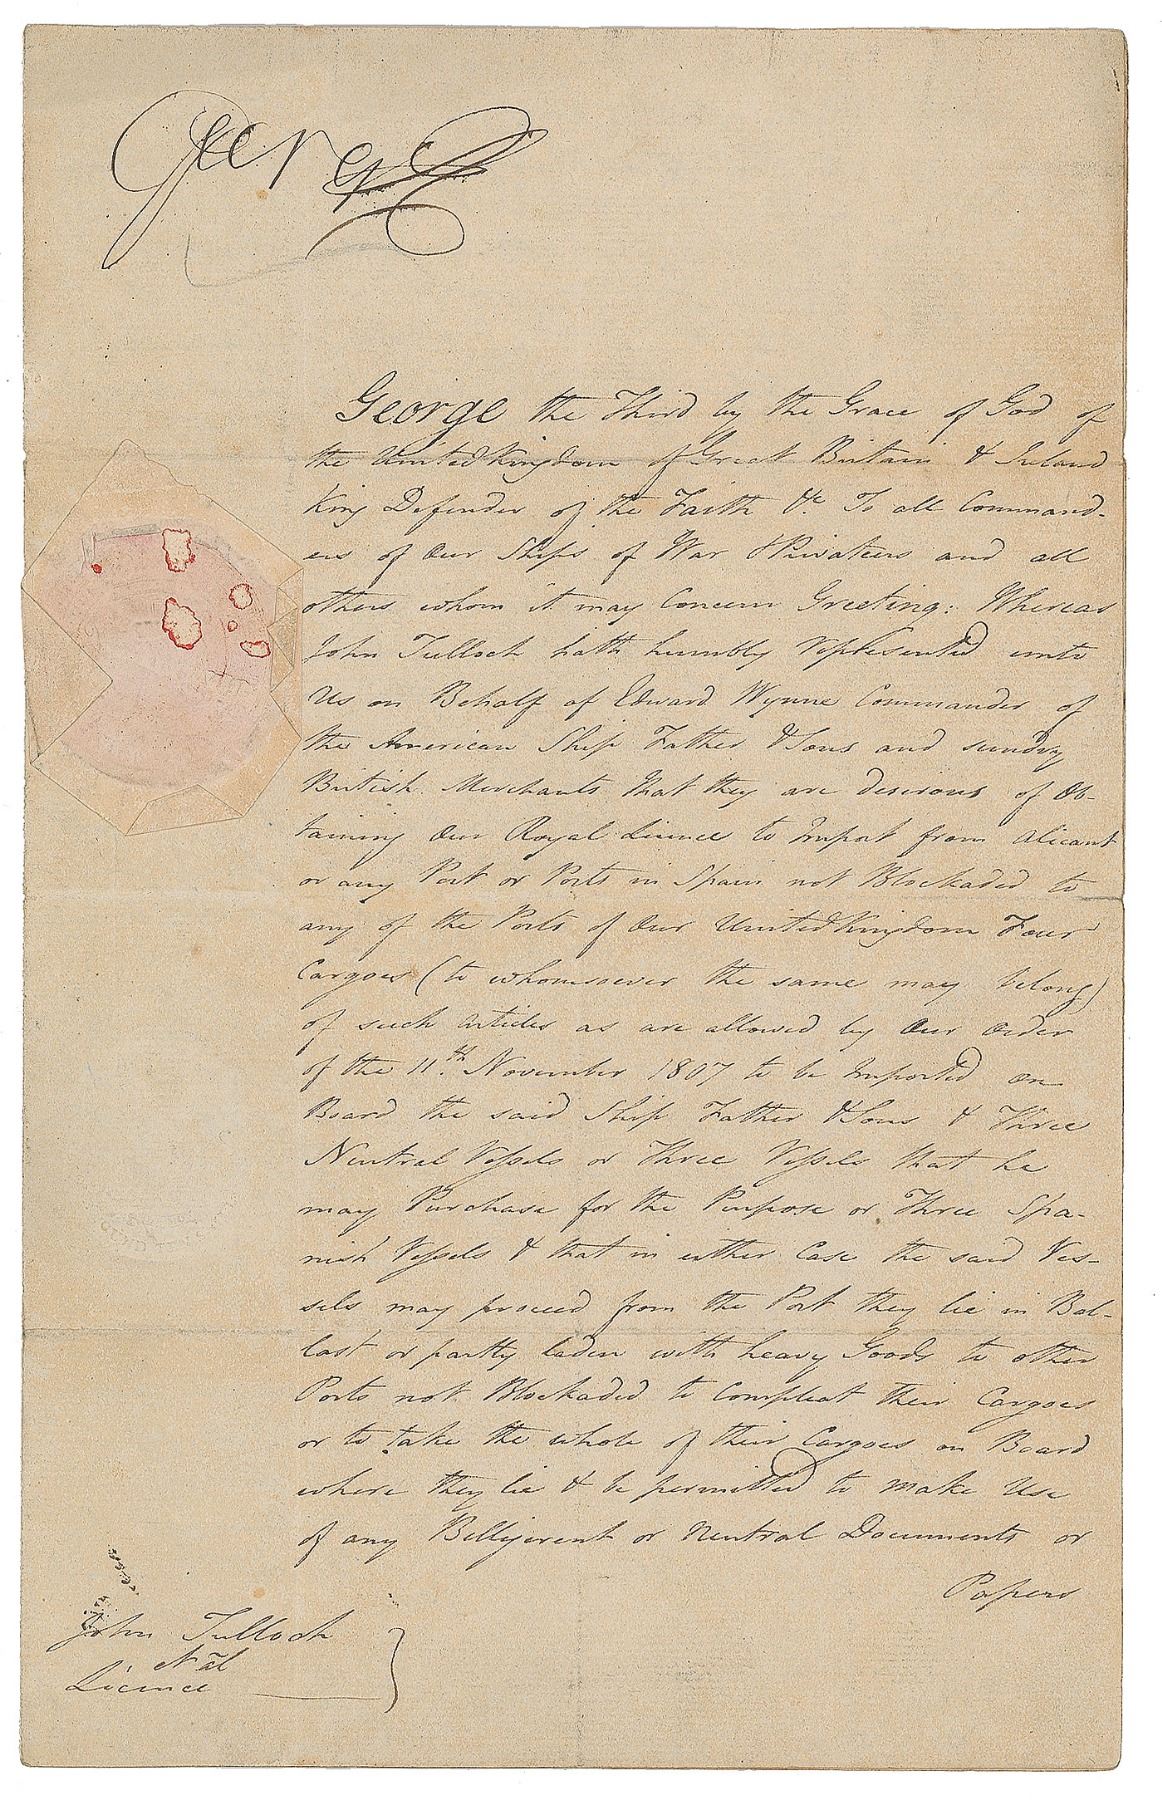 George
George the Third by the Grace of God of
the United Kingdom of Great Britain & Ireland
King Defender of the Faith &c. To all Command-
ers of Our Ships of War & Privateers and all
others whom it may Concern Greeting: Whereas
John Tulloch hath humbly Represented unto
Us on Behalf of Edward Wynne Commander of
the American Ship Father & Sons and sundry
British Merchants that they are desirous of Ob-
taining Our Royal Licence to Import from Alicant
or any Port or Ports in Spain not Blockaded to
any of the Ports of Our United Kingdom Four
Cargoes (to whomsoever the same may belong)
of such Articles as are allowed by Our Order
of the 11th. November 1807 to be Imported on
Board the said Ship Father & Sons & Three
Neutral Vessels or Three Vessels that he
may Purchase for the Purpose or Three Spa-
nish Vessels & that in either Case the said Ves-
sels may proceed from the Port they lie in Bal-
last or partly laden with heavy Goods to other
Ports not Blockaded to Compleat their Cargoes
or to take the whole of their Cargoes on Board
where they lie & be permitted to make Use
of any Belligerent or Neutral Documents or
Papers
John Tulloch
Licence